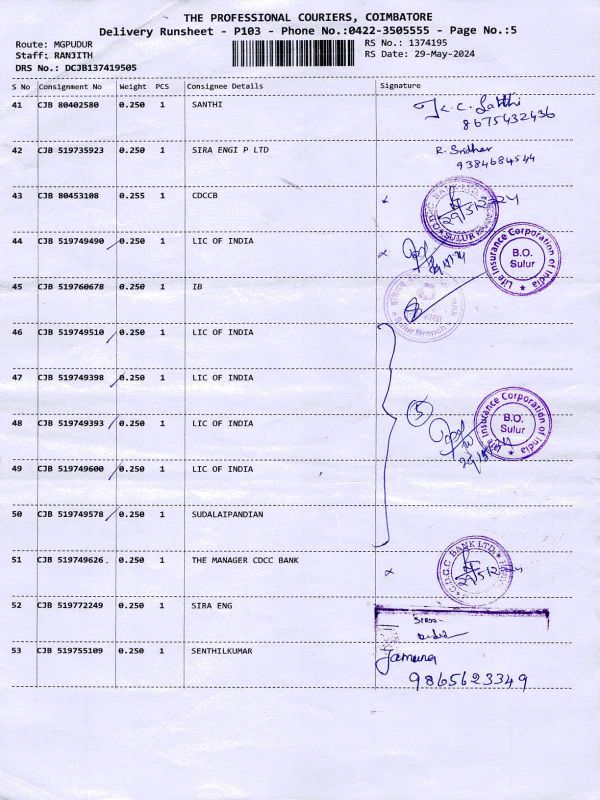 THE PROFESSIONAL COURIERS, COIMBATORE
Delivery Runsheet - P103 - Phone No.:0422-3505555 - Page No.:5
Route: MGPUDUR RS No.: 1374195
Staff: RANJITH RS Date: 29-May-2024
DRS No.: DCJB137419505
S No Consignment No Weight PCS Consignee Details Signature
41 CJB 80402580 0.250 1 SANTHI K.C. Sakthi
8675432436
42 CJB 519735923 0.250 1 SIRA ENGI P LTD R. Sridhar
9384684544
43 CJB 80453108 0.255 1 CDCCB
SULUR
44 CJB 519749490 0.250 1 LIC OF INDIA
Life Insurance Corporation of India
B.O.
Sulur
45 CJB 519760678 0.250 1 IB
Sulur Branch
46 CJB 519749510 0.250 1 LIC OF INDIA
47 CJB 519749398 0.250 1 LIC OF INDIA
48 CJB 519749393 0.250 1 LIC OF INDIA 5
Life Insurance Corporation of India
B.O.
Sulur
49 CJB 519749600 0.250 1 LIC OF INDIA
50 CJB 519749578 0.250 1 SUDALAIPANDIAN
51 CJB 519749626 0.250 1 THE MANAGER CDCC BANK
BANK LTD.
52 CJB 519772249 0.250 1 SIRA ENG
53 CJB 519755109 0.250 1 SENTHILKUMAR Jamuna
9865623349